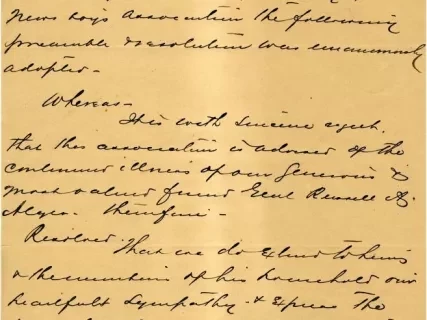 News boys association the following
preamble & resolution was unanimously
adopted -
Whereas -
It is with sincere regret,
that this association is advised of the
continued illness of our generous &
most valued friend Genl Russell A.
Alger - therefore -
Resolved. That we do extend to him
& the members of his household our
heartfelt sympathy & express the